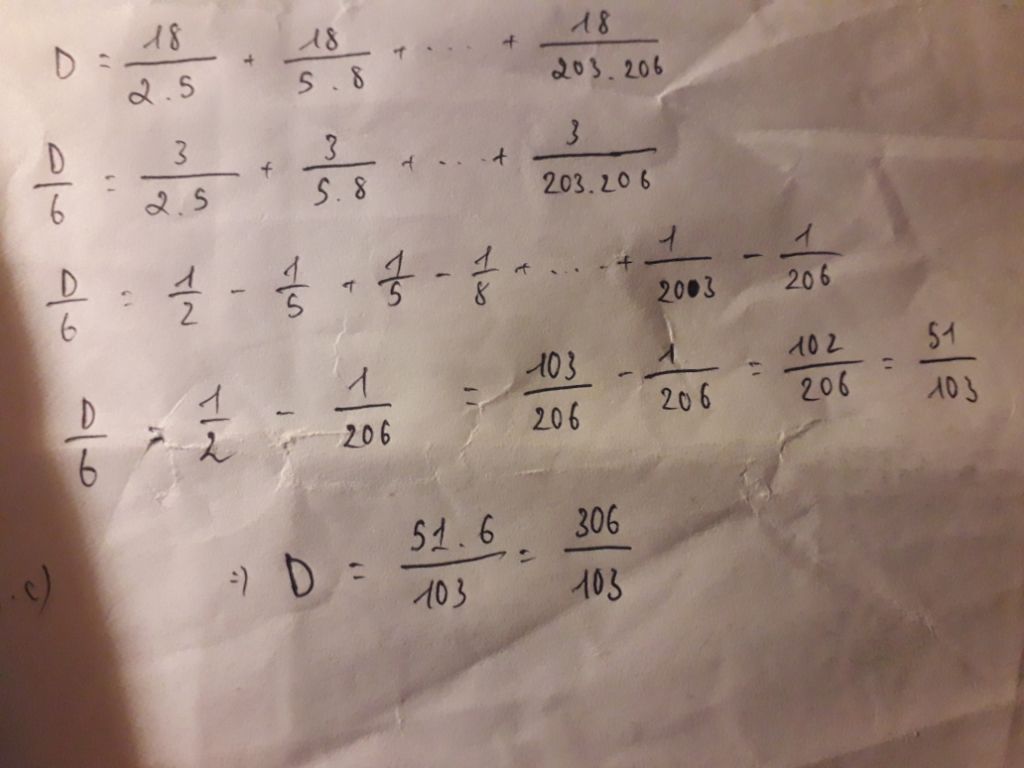 D = 18/2.5 + 18/5.8 + .... + 18/203.206
D/6 = 3/2.5 + 3/5.8 + ... + 3/203.206
D/6 = 1/2 - 1/5 + 1/5 - 1/8 + ... + 1/203 - 1/206
D/6 = 1/2 - 1/206 = 103/206 - 1/206 = 102/206 = 51/103
.c) =) D = 51.6/103 = 306/103